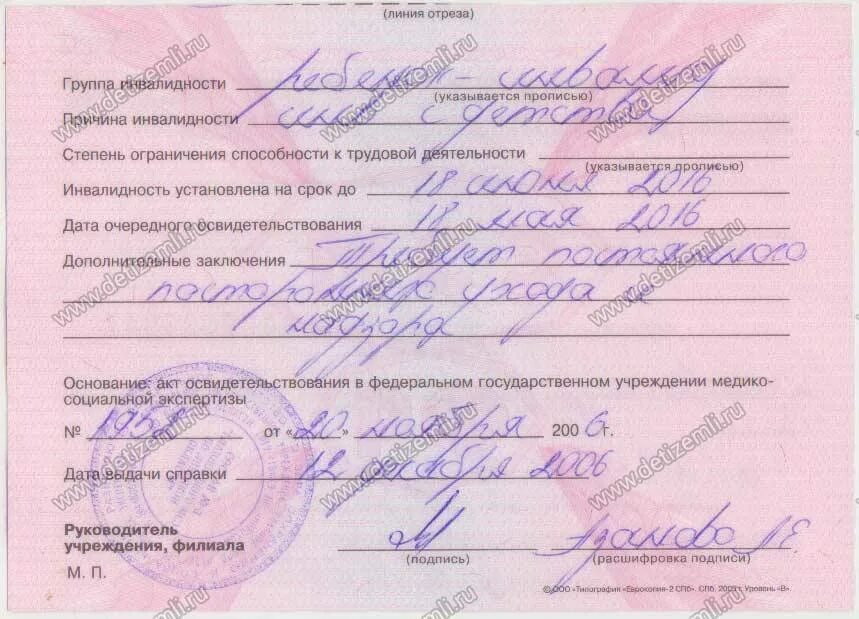 (линия отреза)
Группа инвалидности ребенок-инвалид
(указывается прописью)
Причина инвалидности инв с детства
Степень ограничения способности к трудовой деятельности
(указывается прописью)
Инвалидность установлена на срок до 18 июня 2016
Дата очередного освидетельствования 18 мая 2016
Дополнительные заключения Требует постоянного
постороннего ухода и
надзора
Основание: акт освидетельствования в федеральном государственном учреждении медико-
социальной экспертизы
№ 1958 от «20» ноября 2006 г.
Дата выдачи справки 12 декабря 2006
Руководитель
учреждения, филиала
(подпись) (расшифровка подписи)
М. П.
© ООО «Типография «Еврокопия-2 СПб». СПб, 2005 г. Уровень «В».
www.detizemli.ru